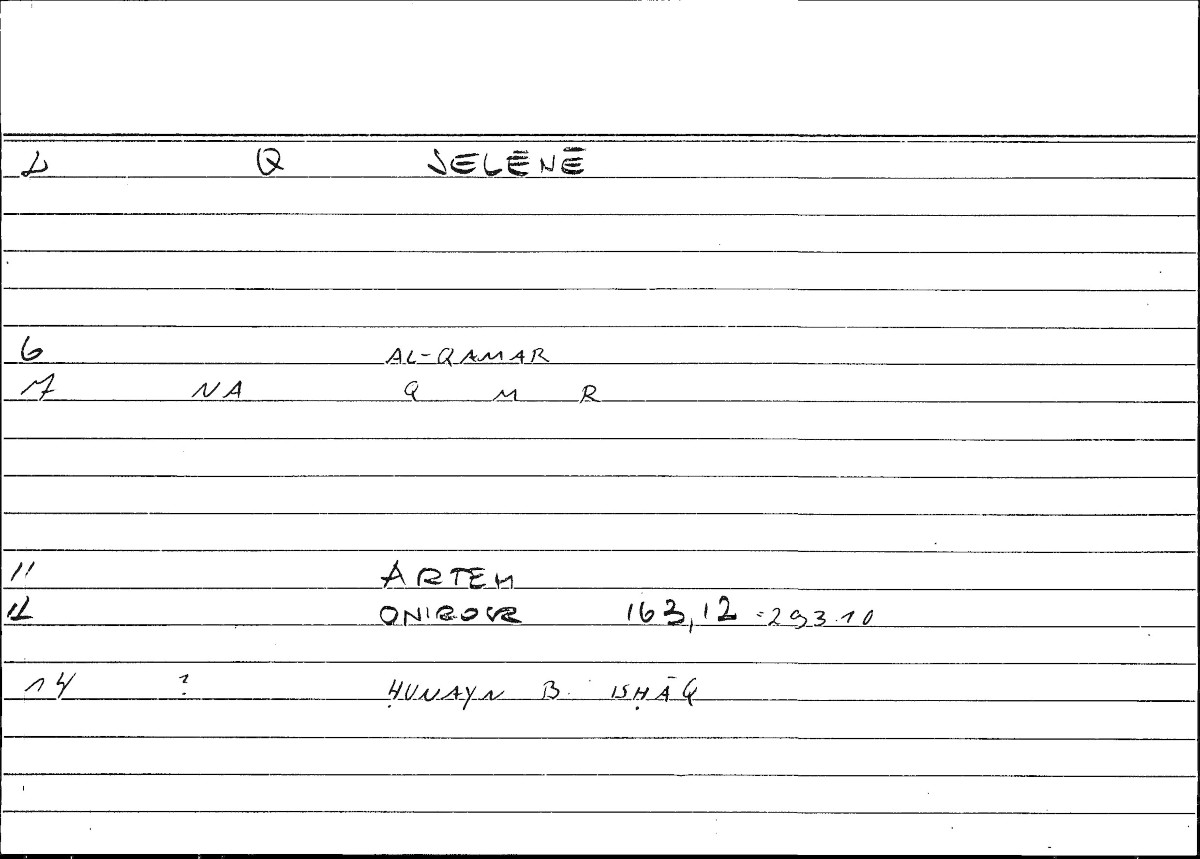 1 Q SELĒNĒ
6 AL-QAMAR
7 NA Q M R
11 ARTEM
12 ONIROCR 163,12 = 293.10
14 ? ḤUNAYN B. ISḤĀQ